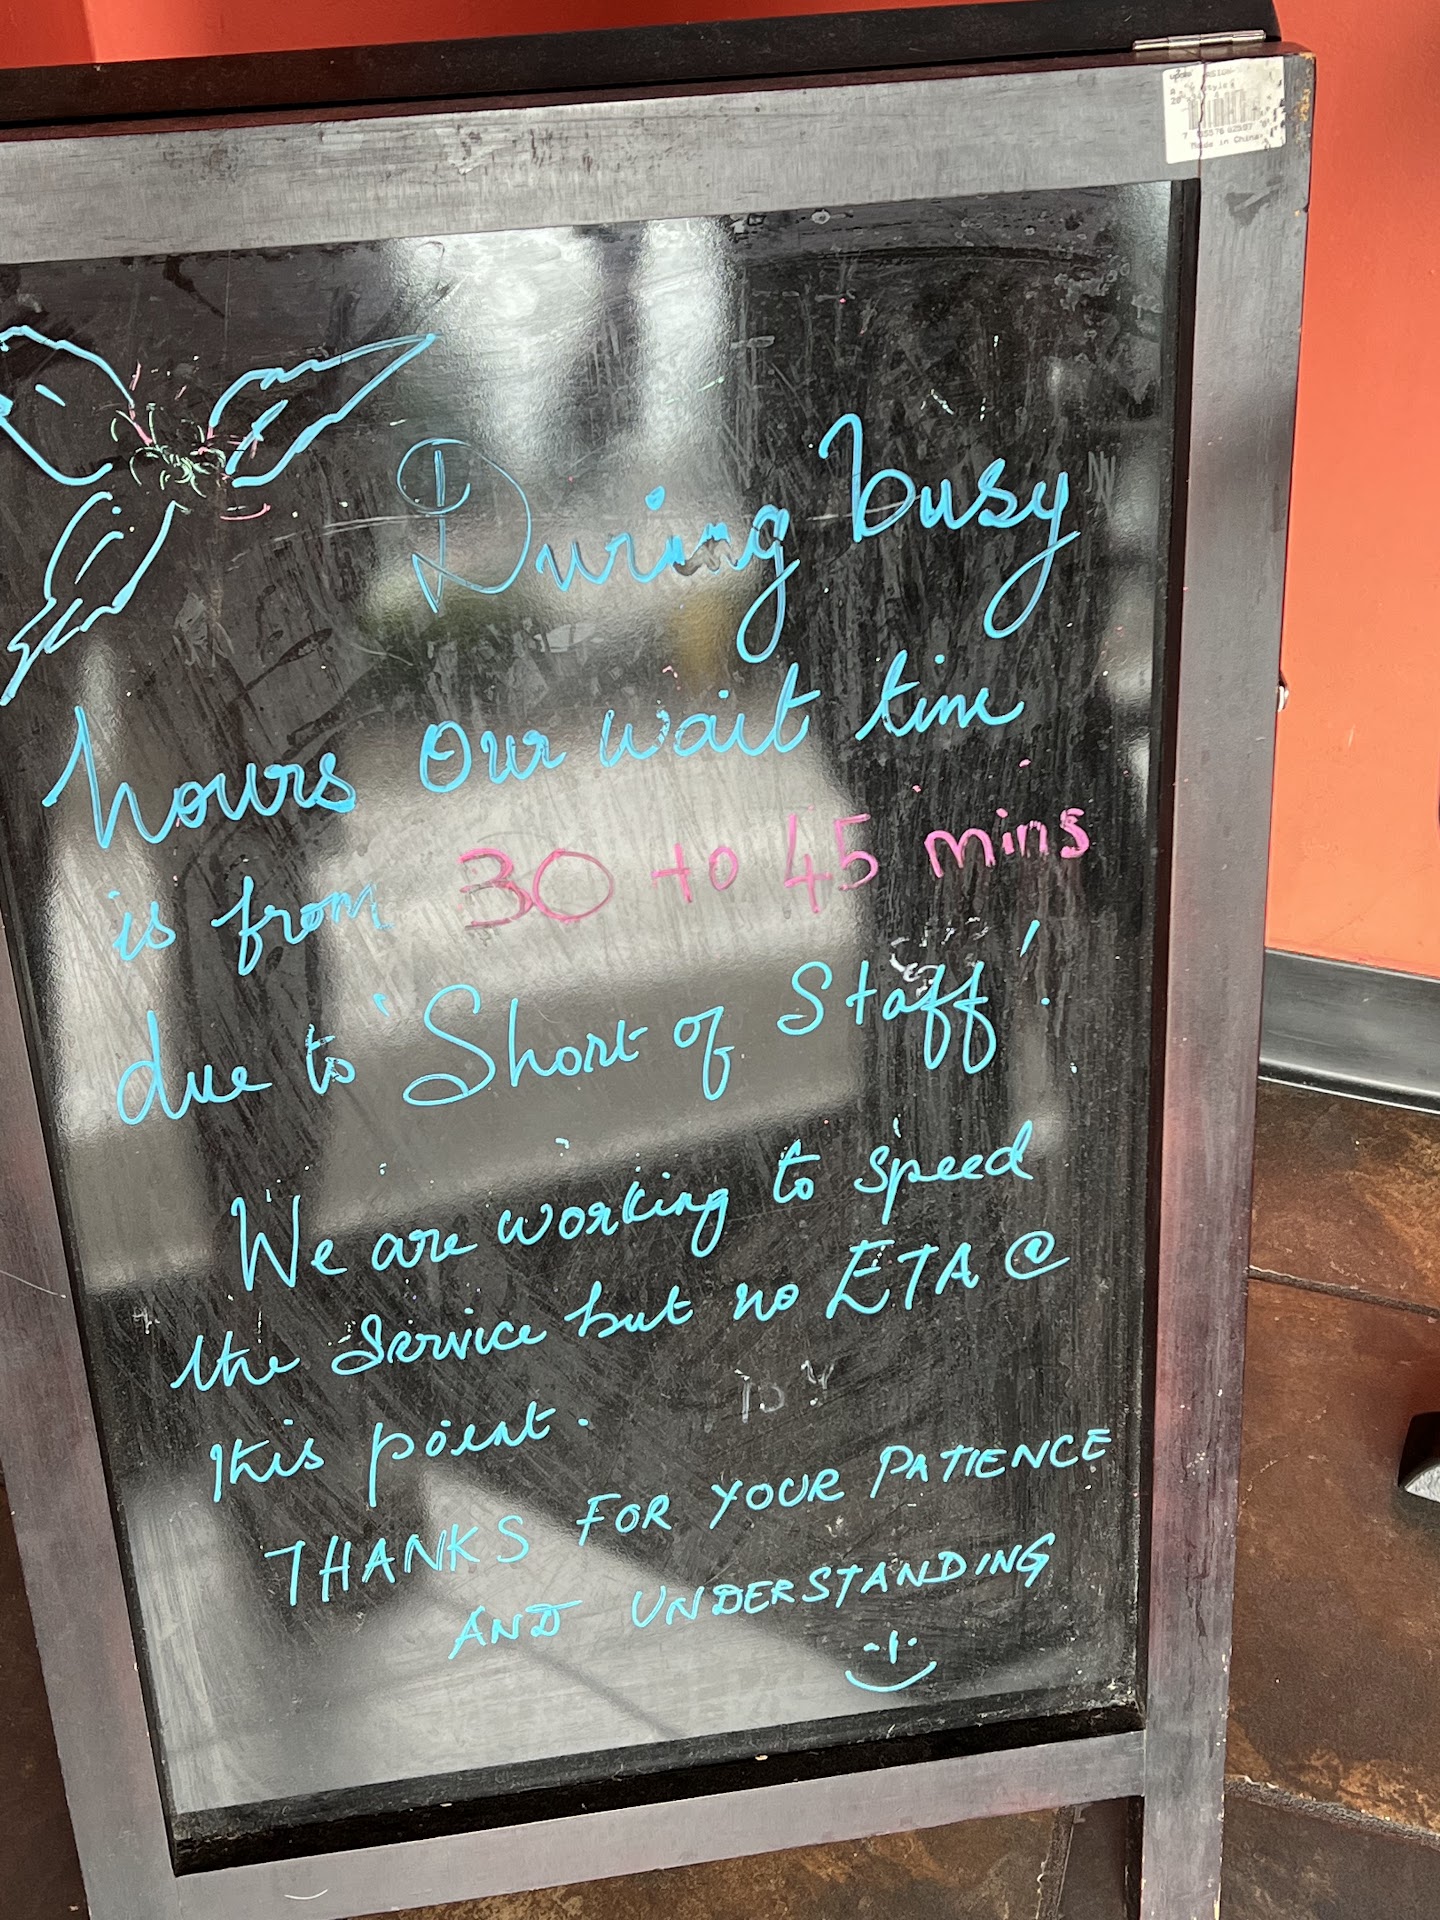 Made in China
During busy
hours our wait time
is from 30 to 45 mins
due to 'Short of Staff'!
We are working to speed
the service but no ETA @
this point.
THANKS FOR YOUR PATIENCE
AND UNDERSTANDING